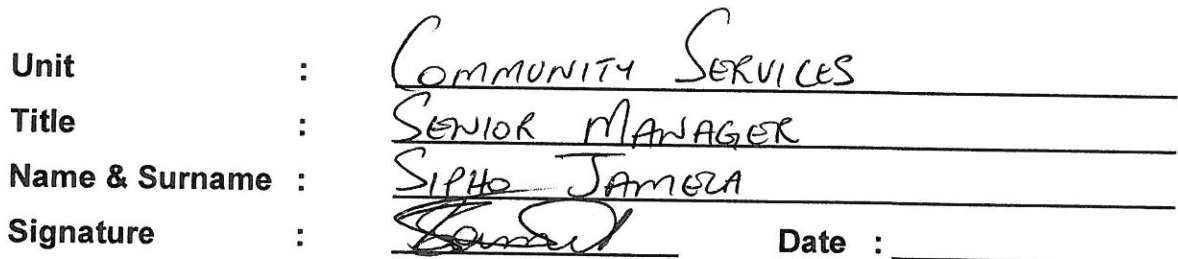 Unit : COMMUNITY SERVICES
Title : SENIOR MANAGER
Name & Surname : SIPHO JAMELA
Signature : Date :